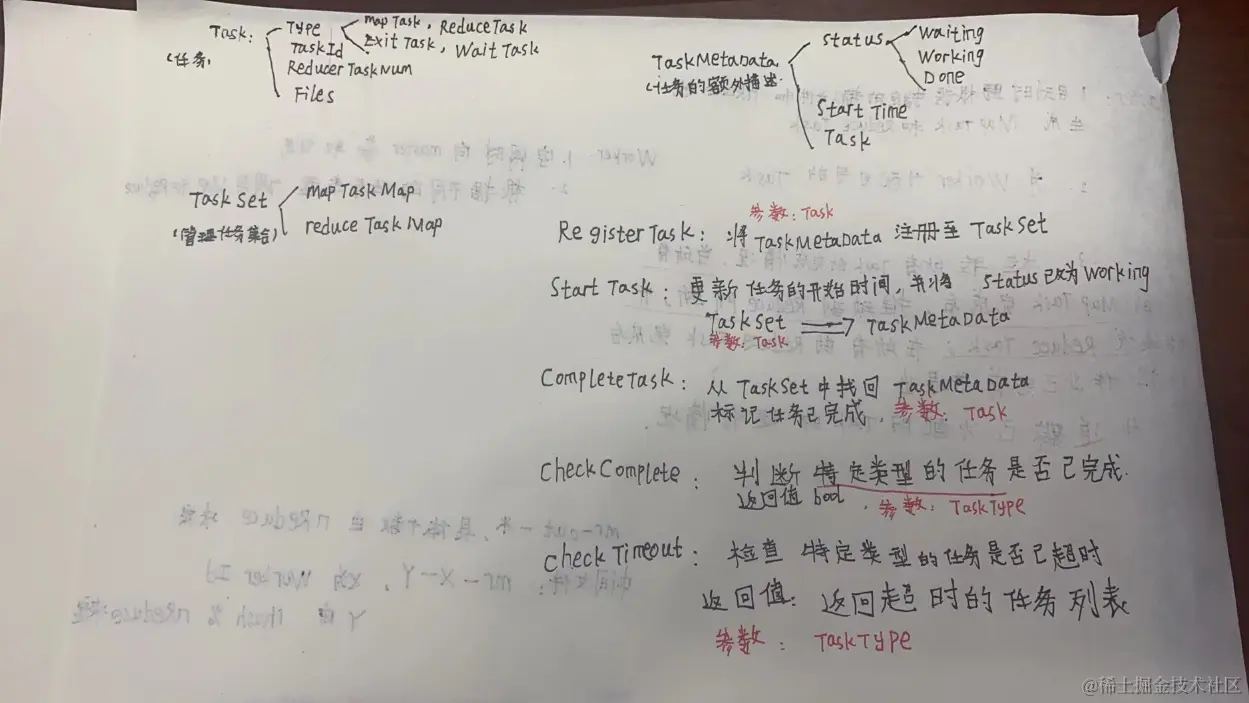 Task:
(任务)
Type
mapTask, ReduceTask
Exit Task, Wait Task
TaskId
Reducer TaskNum
Files
TaskMetaData
(任务的额外描述.
status
Waiting
Working
Done
Start Time
Task
Task Set
(管理任务集合)
mapTaskMap
reduce Task Map
参数: Task
RegisterTask: 将 TaskMetaData 注册至 TaskSet
Start Task: 更新任务的开始时间, 并将 Status改为Working
TaskSet ⇒ TaskMetaData
参数: Task
CompleteTask: 从 TaskSet 中找回 TaskMetaData
标记任务已完成. 参数: Task
CheckComplete: 判断特定类型的任务是否已完成.
返回值 bool. 参数: TaskType
checkTimeout: 检查 特定类型的任务是否已超时
返回值: 返回超时的任务列表
参数: TaskType
@稀土掘金技术社区